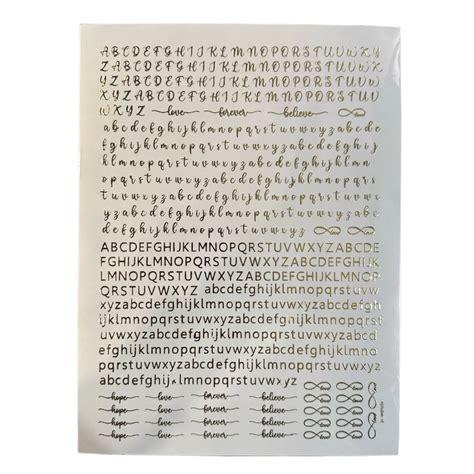 ABCDEFGHIJKLMNOPQRSTUVWX
YZABCDEFGHIJKLMNOPQRSTUV
WXYZABCDEFGHIJKLMNOPQRSTUV
WXYZ love forever believe
abcdefghijklmnopqrstuvwxyzabc
defghijklmnopqrstuvwxyzabcdefghijklmn
opqrstuvwxyzabcdefghijklmnopqrstuvwxyz
abcdefghijklmnopqrstuvwxyzabcde
fghijklmnopqrstuvwxyz
ABCDEFGHIJKLMNOPQRSTUVWXYZABCDE
FGHIJKLMNOPQRSTUVWXYZABCDEFGHI
JKLMNOPQRSTUVWXYZabcdefghijklmnopqrstuv
wxyzabcdefghijklmnopqrstuvwxyzabcdefgh
ijklmnopqrstuvwxyzabcdefghijklmnopqrstuvwxyz
abcdefghijklmnopqrstuvwxyzabcdefghijklmno
pqrstuvwxyzabcdefghijklmnopqrstuvwxyz
abcdefghijklmnopqrstuvwxyz
hope love forever believe
hope love forever believe
hope love forever believe
hope love forever believe